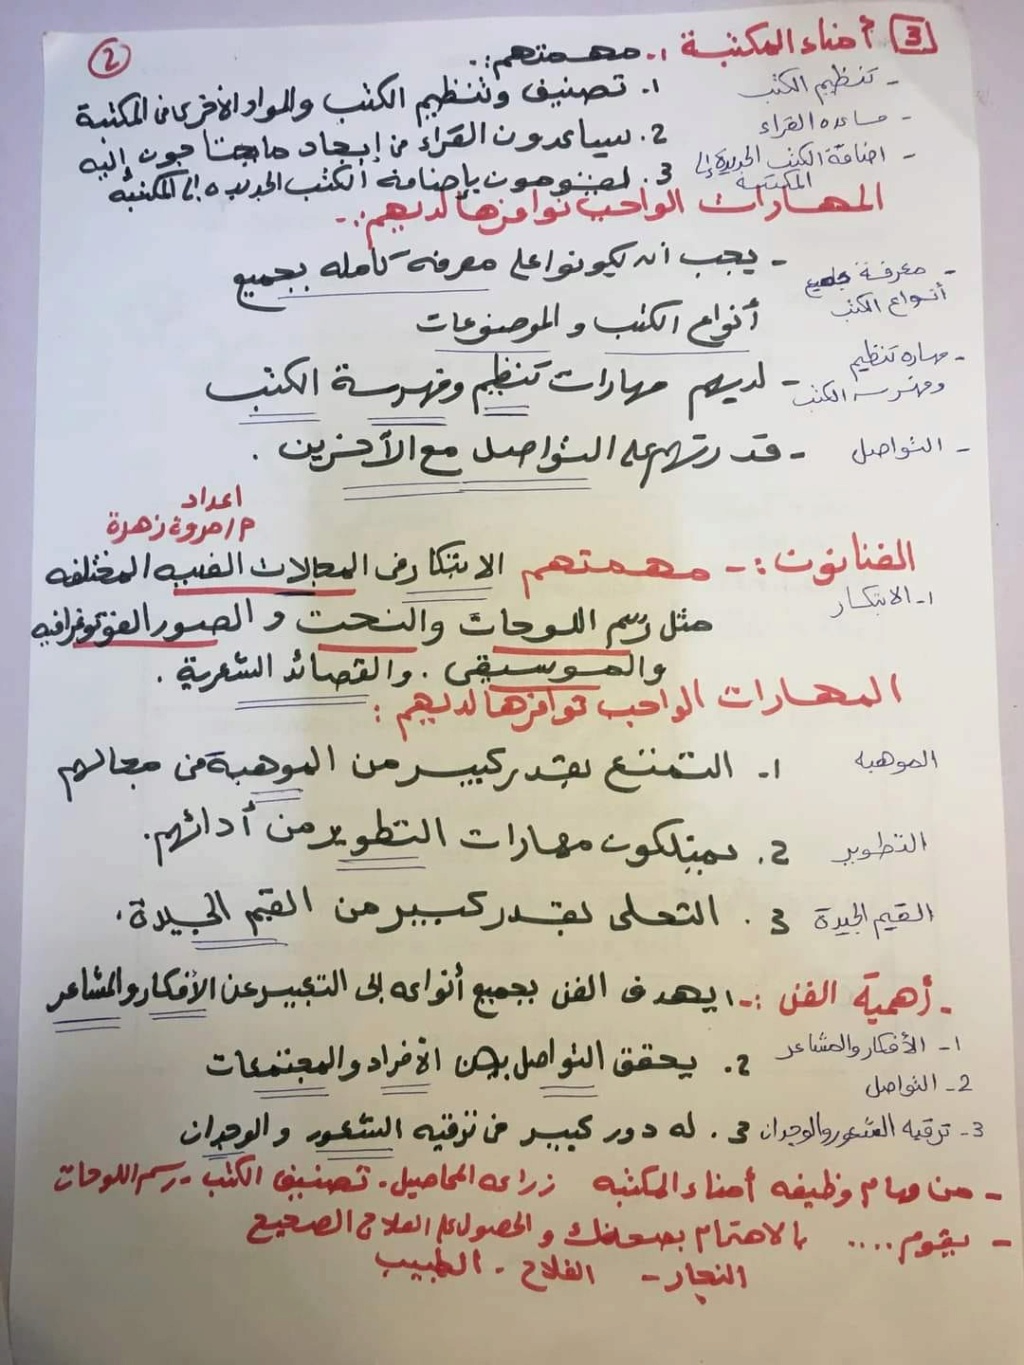 2
3 أمناء المكتبة :- مهمتهم:-
- تنظيم الكتب
1. تصنيف وتنظيم الكتب والمواد الأخرى في المكتبة
- مساعده القراء
2. يساعدون القراء في إيجاد ما يحتاجون إليه
- اضافة الكتب الجديدة إلى المكتبة
3. يقومون بإضافة الكتب الجديده إلى المكتبة
المهارات الواجب توافرها لديهم:-
- معرفة جميع أنواع الكتب
- يجب أن يكونوا على معرفه كامله بجميع
أنواع الكتب والموضوعات
- مهاره تنظيم وفهرسه الكتب
- لديهم مهارات تنظيم وفهرسة الكتب
- التواصل
- قدرتهم على التواصل مع الآخرين .
اعداد
م/مروة زهرة
الفنانون :- مهمتهم الابتكار في المجالات الفنيه المختلفه
1- الابتكار
مثل رسم اللوحات والنحت و الصور الفوتوغرافيه
والموسيقى . والقصائد الشعرية .
المهارات الواجب توافرها لديهم :
الموهبه
1. التمتع بقدر كبير من الموهبة في مجالهم
التطوير
2. يمتلكون مهارات التطوير من أدائهم.
القيم الجيدة
3 . التحلى بقدر كبير من القيم الجيدة .
- أهمية الفن :- 1 يهدف الفن بجميع أنواعه إلى التعبير عن الأفكار والمشاعر
1- الأفكار والمشاعر
2. يحقق التواصل بين الأفراد والمجتمعات
2- التواصل
3- ترقيه الشعور والوجدان
3 . له دور كبير في ترقيه الشعور والوجدان
- من مهام وظيفه أمناء المكتبه زراعه المحاصيل - تصنيف الكتب - رسم اللوحات
- يقوم .... بالاهتمام بصحتك والحصول على العلاج الصحيح
النجار - الفلاح - الطبيب